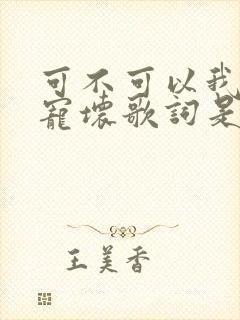 可不可以我
寵壞歌詞是
王美香